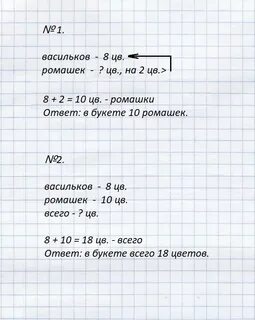 №1.
васильков - 8 цв.
ромашек - ? цв., на 2 цв.>
8 + 2 = 10 цв. - ромашки
Ответ: в букете 10 ромашек.
№2.
васильков - 8 цв.
ромашек - 10 цв.
всего - ? цв.
8 + 10 = 18 цв. - всего
Ответ: в букете всего 18 цветов.